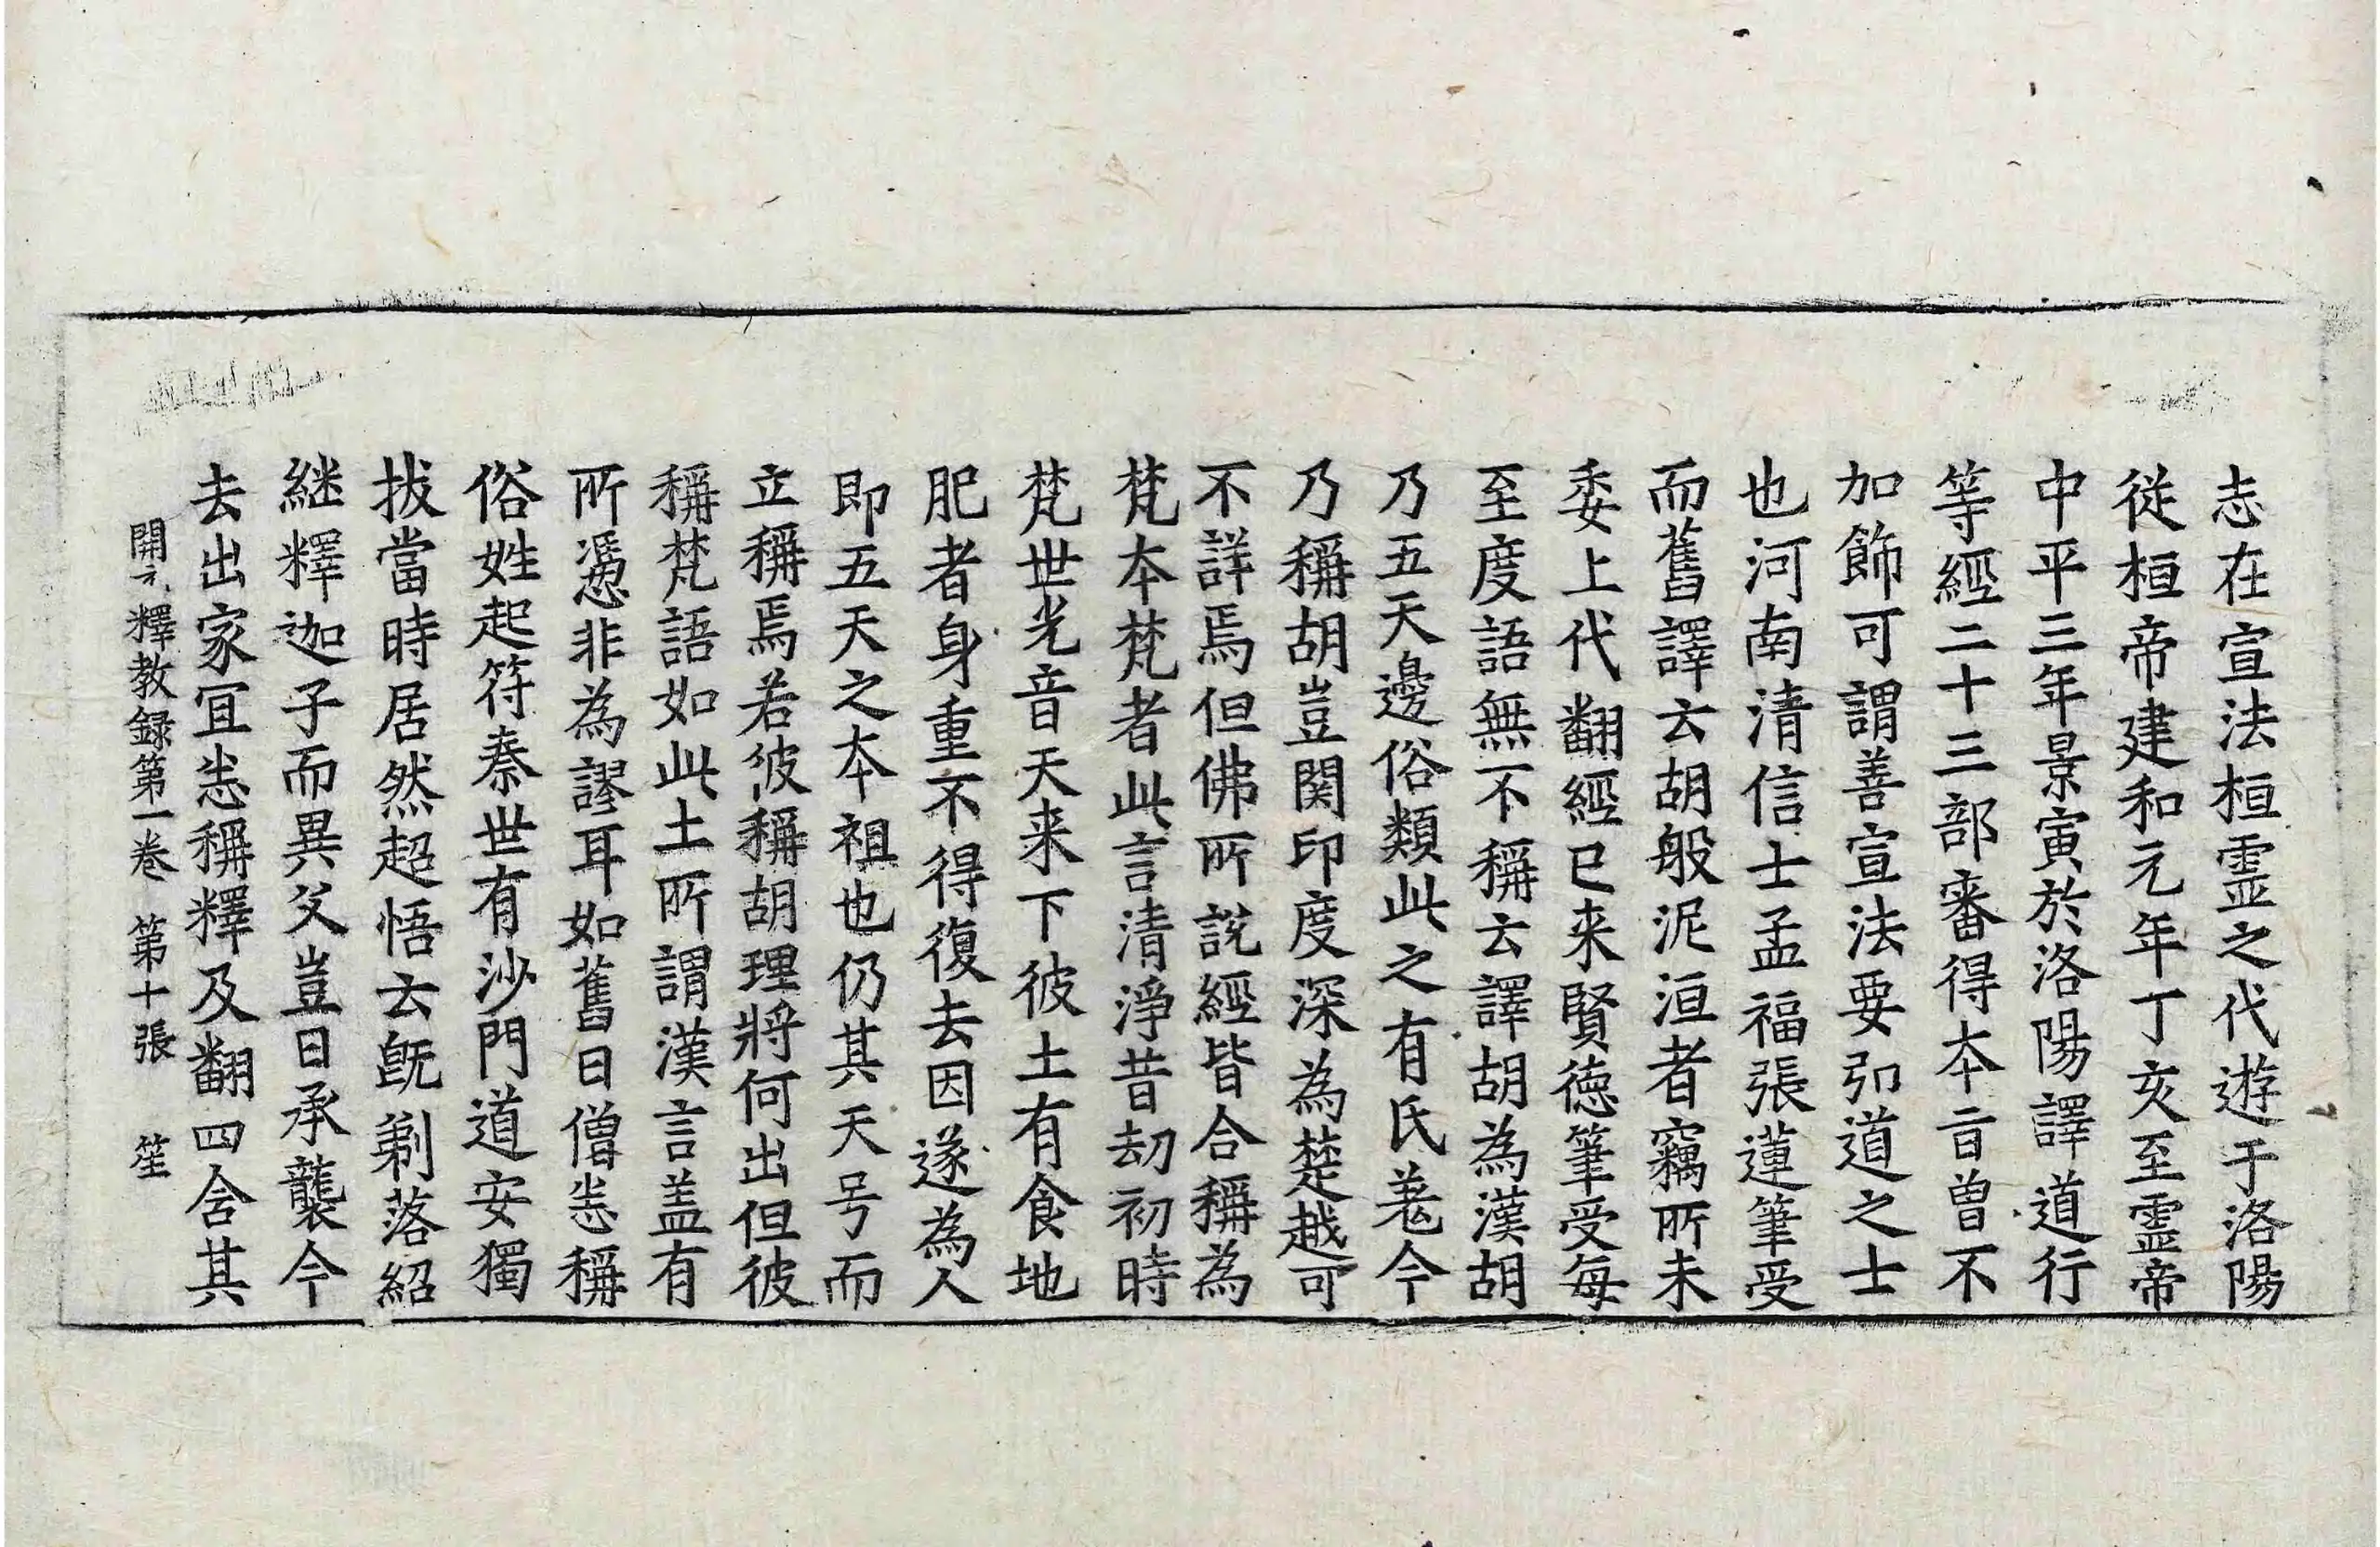 志在宣法桓霊之代遊于洛陽
従桓帝建和元年丁亥至霊帝
中平三年景寅於洛陽譯道行
等經二十三部審得本旨曽不
加飾可謂善宣法要弘道之士
也河南清信士孟福張蓮筆受
而舊譯云胡般泥洹者竊所未
委上代翻經已来賢徳筆受每
至度語無不稱云譯胡為漢胡
乃五天邊俗類此之有氐羗今
乃稱胡豈関印度深為楚越可
不詳焉但佛所説經皆合稱為
梵本梵者此言清淨昔劫初時
梵世光音天来下彼土有食地
肥者身重不得復去因遂為人
即五天之本祖也仍其天号而
立稱焉若彼稱胡理將何出但彼
稱梵語如此土所謂漢言盖有
所憑非為謬耳如舊曰僧恙稱
俗姓起符秦世有沙門道安獨
拔當時居然超悟云既剃落紹
継釋迦子而異父豈曰承襲今
去出家冝恙稱釋及翻四含其
開元釋教録第一卷 第十張 笙